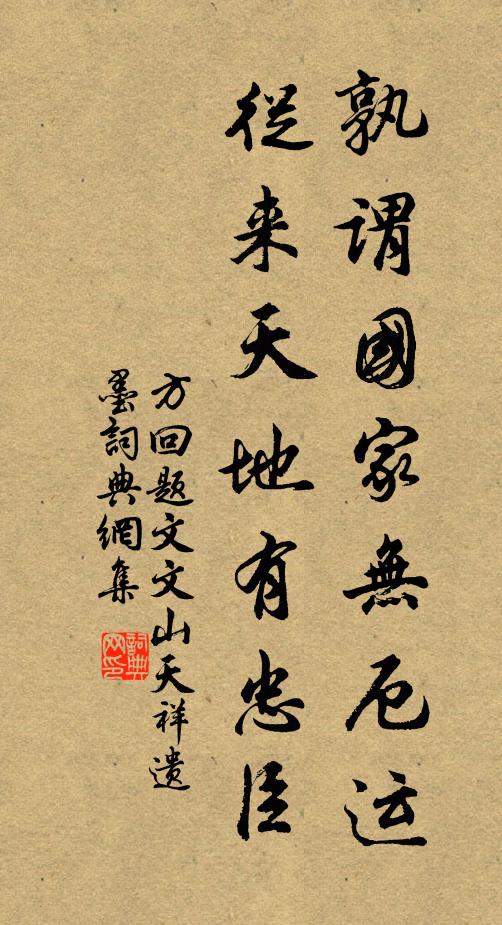 孰谓國家無厄运
從来天地有忠臣
方回题文文山天祥遗
墨詞典網集
詞典网印